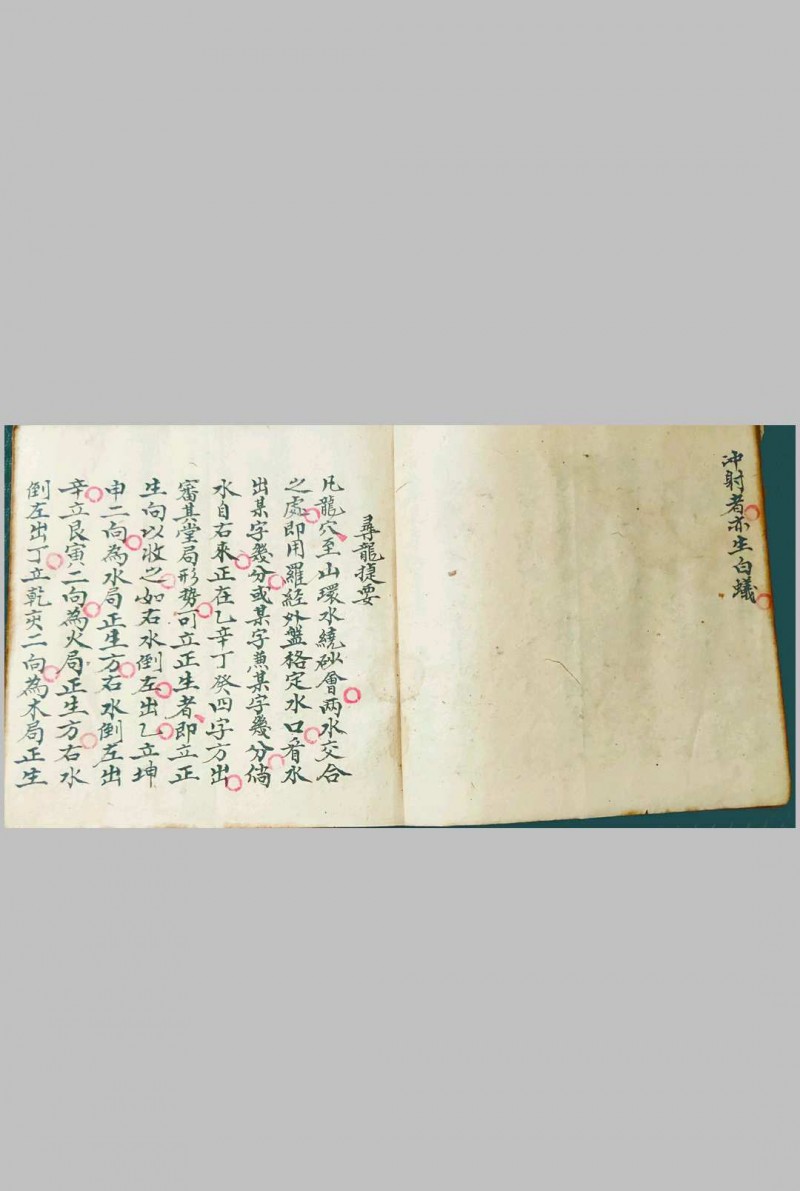 冲射者亦生白蟻
尋龍捷要
凡龍穴至山環水繞砂會兩水交合
之處即用羅經外盤格定水口看水
出某字幾分或某字兼某字幾分倘
水自右來正在乙辛丁癸四字方出
審其堂局形势可立正生者即立正
生向以收之如右水倒左出乙立坤
申二向為水局正生方右水倒左出
辛立艮寅二向為火局正生方右水
倒左出丁立乾亥二向為木局正生